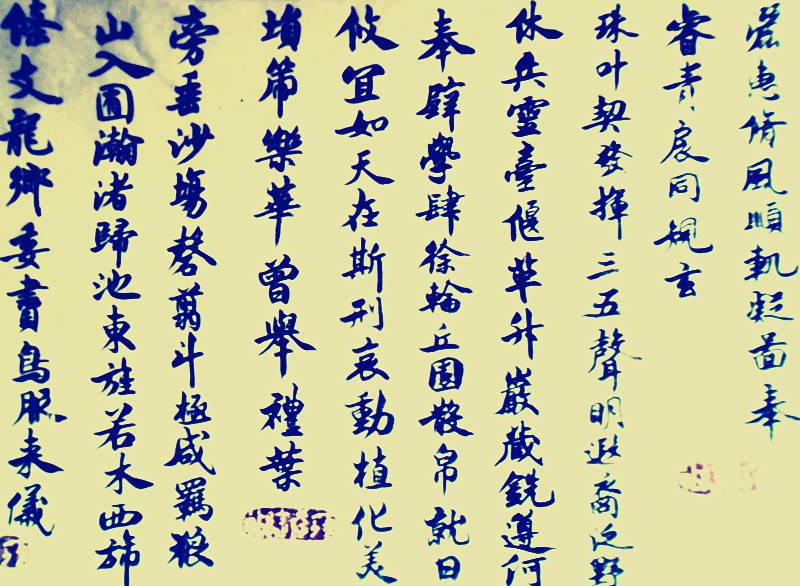 惠脩風順軌凝啚奉
睿負扆同規玄
珠叶契發揮三五聲明遐裔泛野
休兵靈臺偃草升巖藏銑遵何
奉璧學肆徐輪丘園散帛就日
攸宜如天在斯刑哀動植化美
塤箎樂華曾舉禮葉
旁垂沙塲罄翦斗極咸羈狼
山入囿瀚渚歸池東旌若木西旆
僖文龍鄉委賮鳥服来儀